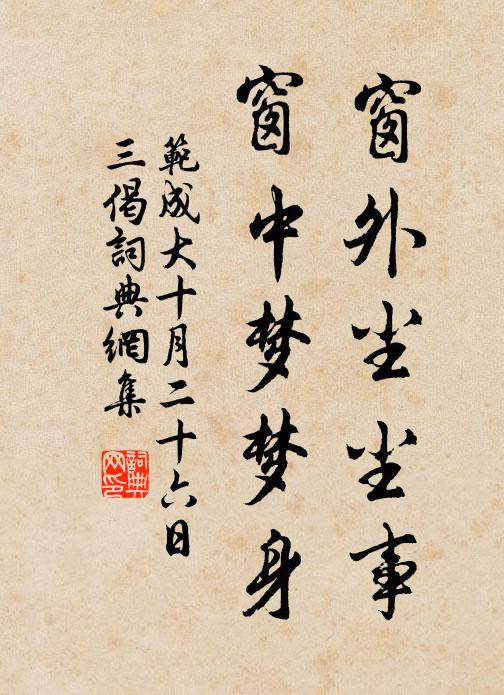 窗外尘尘事
窗中梦梦身
範成大十月二十六日
三偈詞典網集
詞典
网印